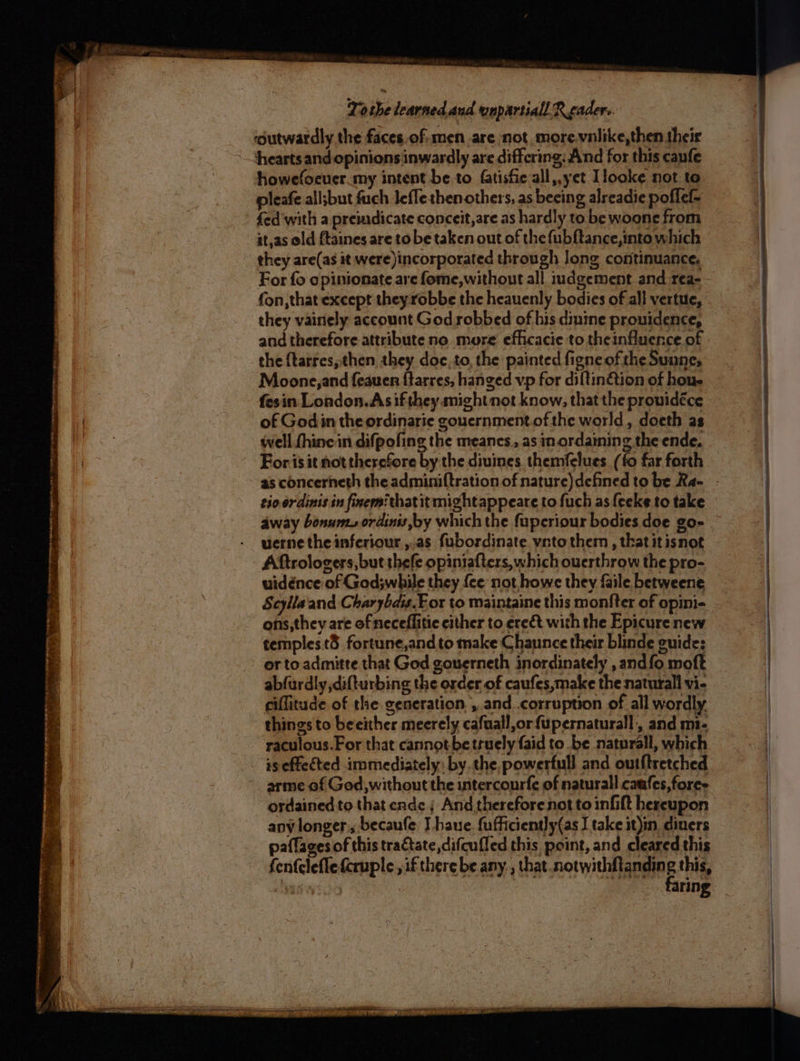 To the learned and vnpartiall Reader.
outwardly the faces of men are not more vnlike, then their
hearts and opinions inwardly are differing. And for this cauſe
howeſoeuer my intent be to ſatisfie all, yet I looke not to
pleaſe all; but ſuch leſſe then others, as beeing alreadie poſſeſ-
ſed with a preiudicate conceit, are as hardly to be woone from
it, as old ſtaines are to be taken out of the ſubſtance, into which
they are (as it were) incorporated through long continuance.
For ſo opinionate are ſome, without all iudgement and rea-
ſon, that except they robbe the heauenly bodies of all vertue,
they vainely account God robbed of his diuine prouidence,
and therefore attribute no more efficacie to the influence of
the ſtarres, then they doe to the painted ſigne of the Sunne,
Moone, and ſeauen ſtarres, hanged vp for diſtinction of hou-
ſes in London. As if they might not know, that the prouidēce
of God in the ordinarie gouernment of the world, doeth as
well ſhine in diſpoſing the meanes, as in ordaining the ende.
For is it not therefore by the diuines themſelues (ſo far forth
as concerneth the adminiſtration of nature) defined to be Ra-
tio ordinis in finem? that it might appeare to ſuch as ſeeke to take
away bonum ordinis, by which the ſuperiour bodies doe go-
uerne the inferiour, as ſubordinate vnto them, that it is not
Aſtrologers, but theſe opiniaſters, which ouerthrow the pro-
uidence of God; while they ſee not howe they faile betweene
Scylla and Charybdis. For to maintaine this monſter of opini-
ons, they are of neceſſitie either to erect with the Epicure new
temples to fortune, and to make Chaunce their blinde guide:
or to admitte that God gouerneth inordinately, and ſo moſt
abſurdly, diſturbing the order of cauſes, make the naturall vi-
ciſſitude of the generation, and corruption of all wordly
things to be either meerely caſuall, or ſupernaturall, and mi-
raculous. For that cannot be truely ſaid to be naturall, which
is effected immediately by the powerfull and outſtretched
arme of God, without the intercourſe of naturall cauſes, fore-
ordained to that ende; And therefore not to inſiſt hereupon
any longer, becauſe I haue ſufficiently (as I take it) in diuers
paſſages of this tractate, diſcuſſed this point, and cleared this
ſenſeleſſe ſcruple, if there be any, that notwithſtanding this,
faring